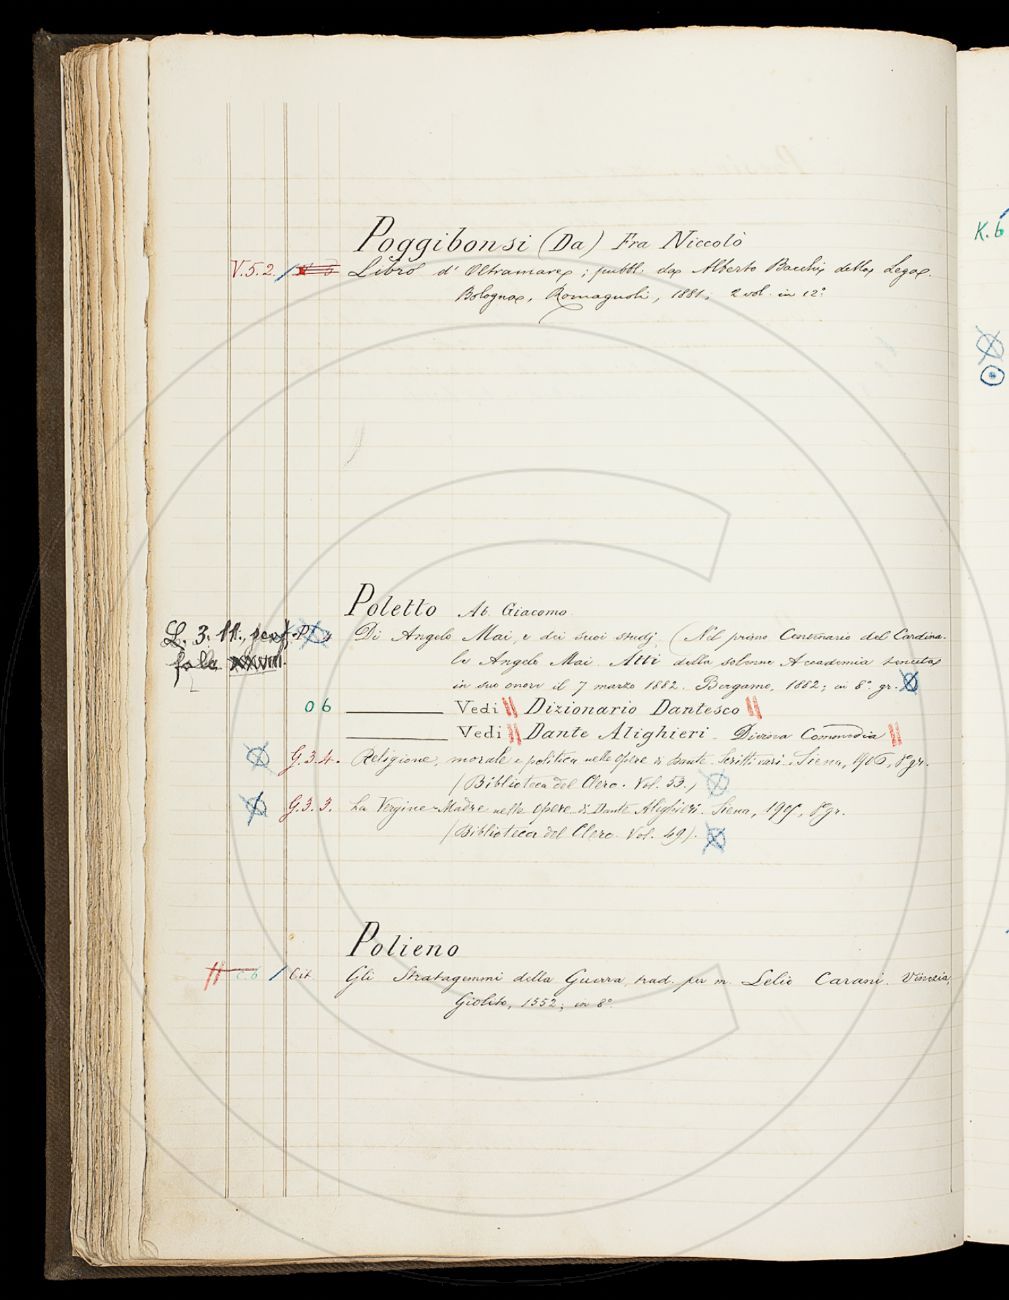 Poggibonsi (Da) Fra Niccolò
V.5.2. Libro d'Oltramare; pubbl. da Alberto Bacchi della Lega.
Bologna, Romagnoli, 1881; 2 vol. in 12º
K.6
Poletto Ab. Giacomo
L. 3. 11., Di Angelo Mai, e dei suoi studj. (Nel primo Centenario del Cardina-
le Angelo Mai. Atti della solenne Accademia tenuta
in suo onore il 7 marzo 1882. Bergamo, 1882; in 8º gr.
06 Vedi Dizionario Dantesco
Vedi Dante Alighieri. Divina Commedia
G.3.4. Religione, morale e politica nelle opere di Dante. Scritti vari. Siena, 1906, 8º gr.
(Biblioteca del Clero. Vol. 53.)
G.3.3. La Vergine-Madre nelle opere di Dante Alighieri. Siena, 8º gr.
(Biblioteca del Clero. Vol. 49).
Polieno
Cit. Gli Stratagemmi della Guerra, trad. per m. Lelio Carani. Vinezia,
Giolito, 1552; in 8º